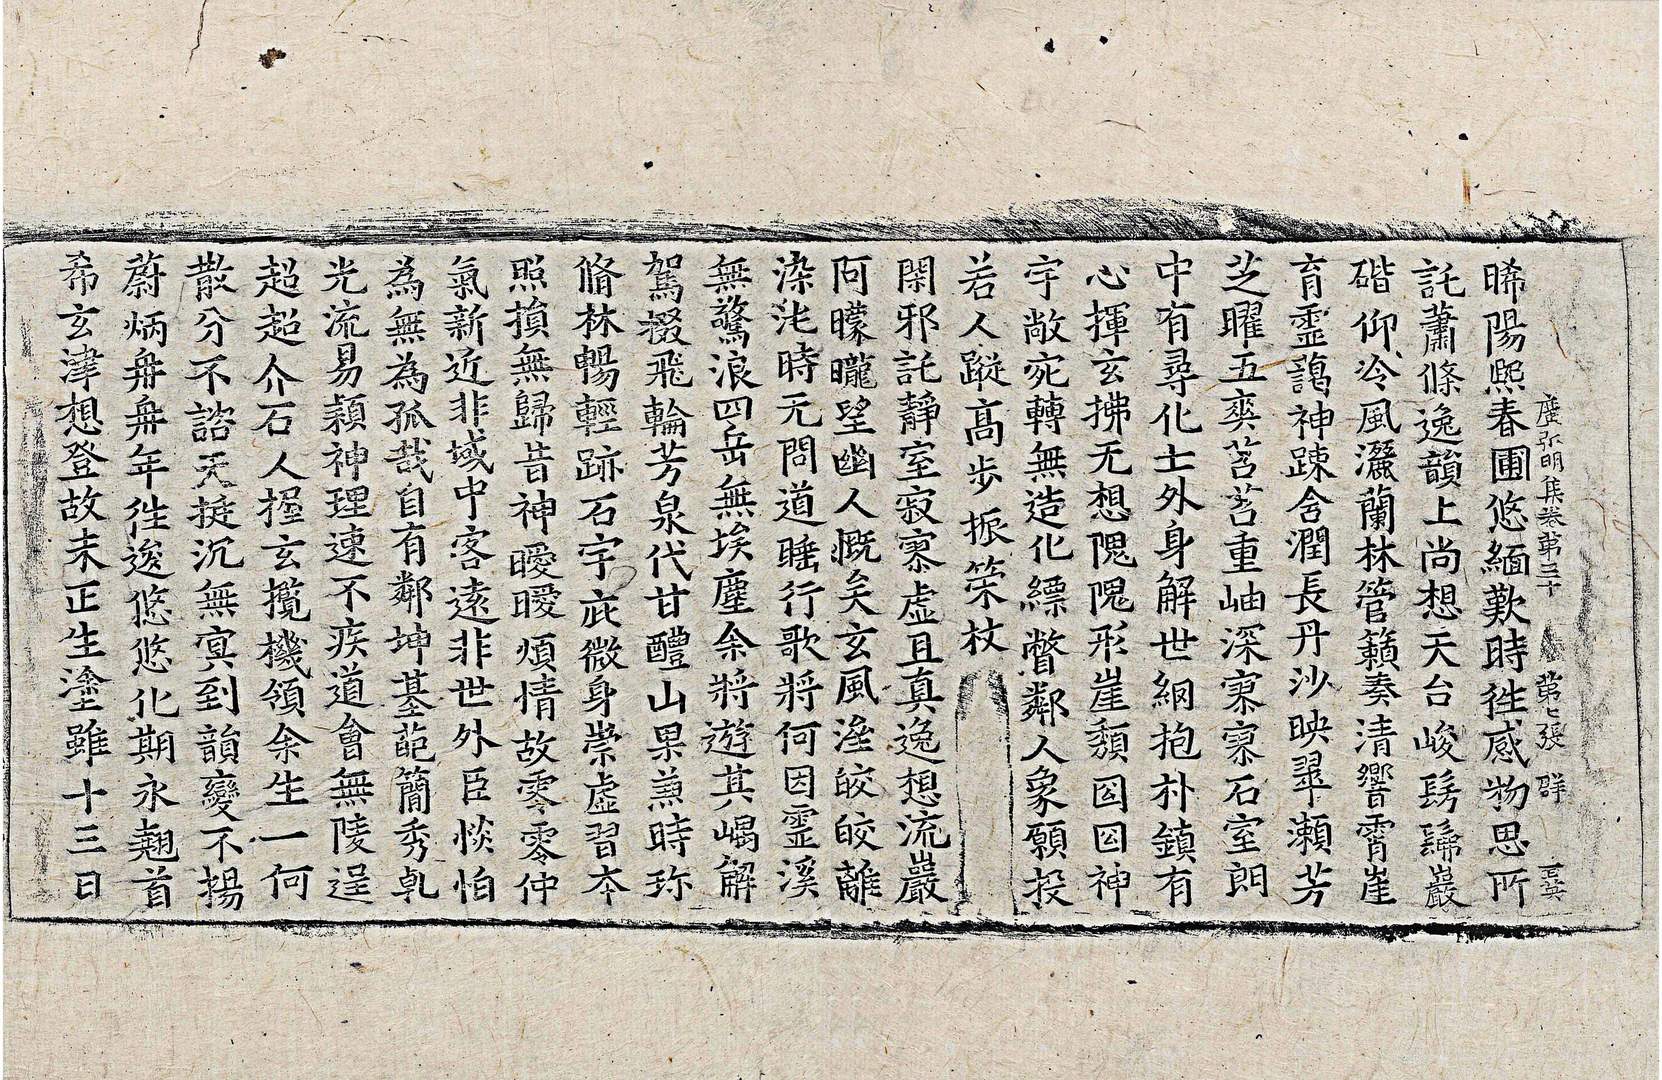 廣弘明集卷第三十　第七張　群
晞陽熙春圃悠緬歎時徃感物思所
託蕭條逸韻上尚想天台峻髣髴巖
碏仰泠風灑蘭林管籟奏清響霄崖
育靈藹神踈含潤長丹沙映翠瀨芳
芝曜五爽苕苕重岫深寥寥石室朗
中有尋化士外身解世網抱朴鎮有
心揮玄拂无想隗隗形崖頹囧囧神
宇敞宛轉無造化縹瞥鄰人象願投
若人蹤高步振策杖
閑邪託靜室寂寥虛且真逸想流巖
阿曚曨望幽人慨矣玄風濟皎皎離
染沌時无問道睡行歌將何因靈溪
無驚浪四岳無埃塵余將遊其嵎解
駕掇飛輪芳泉代甘醴山果兼時珎
脩林暢輕跡石宇庇微身崇虛習本
照損無歸昔神曖曖煩情故零零仲
氣新近非域中客遠非世外臣惔怕
為無為孤哉自有鄰坤基葩簡秀乹
光流易穎神理速不疾道會無陵逞
超超介石人握玄攬機領余生一何
散分不諮天挺沉無㝠到韻變不揚
蔚炳冉冉年徃逡悠悠化期永翹首
希玄津想登故未正生塗雖十三日